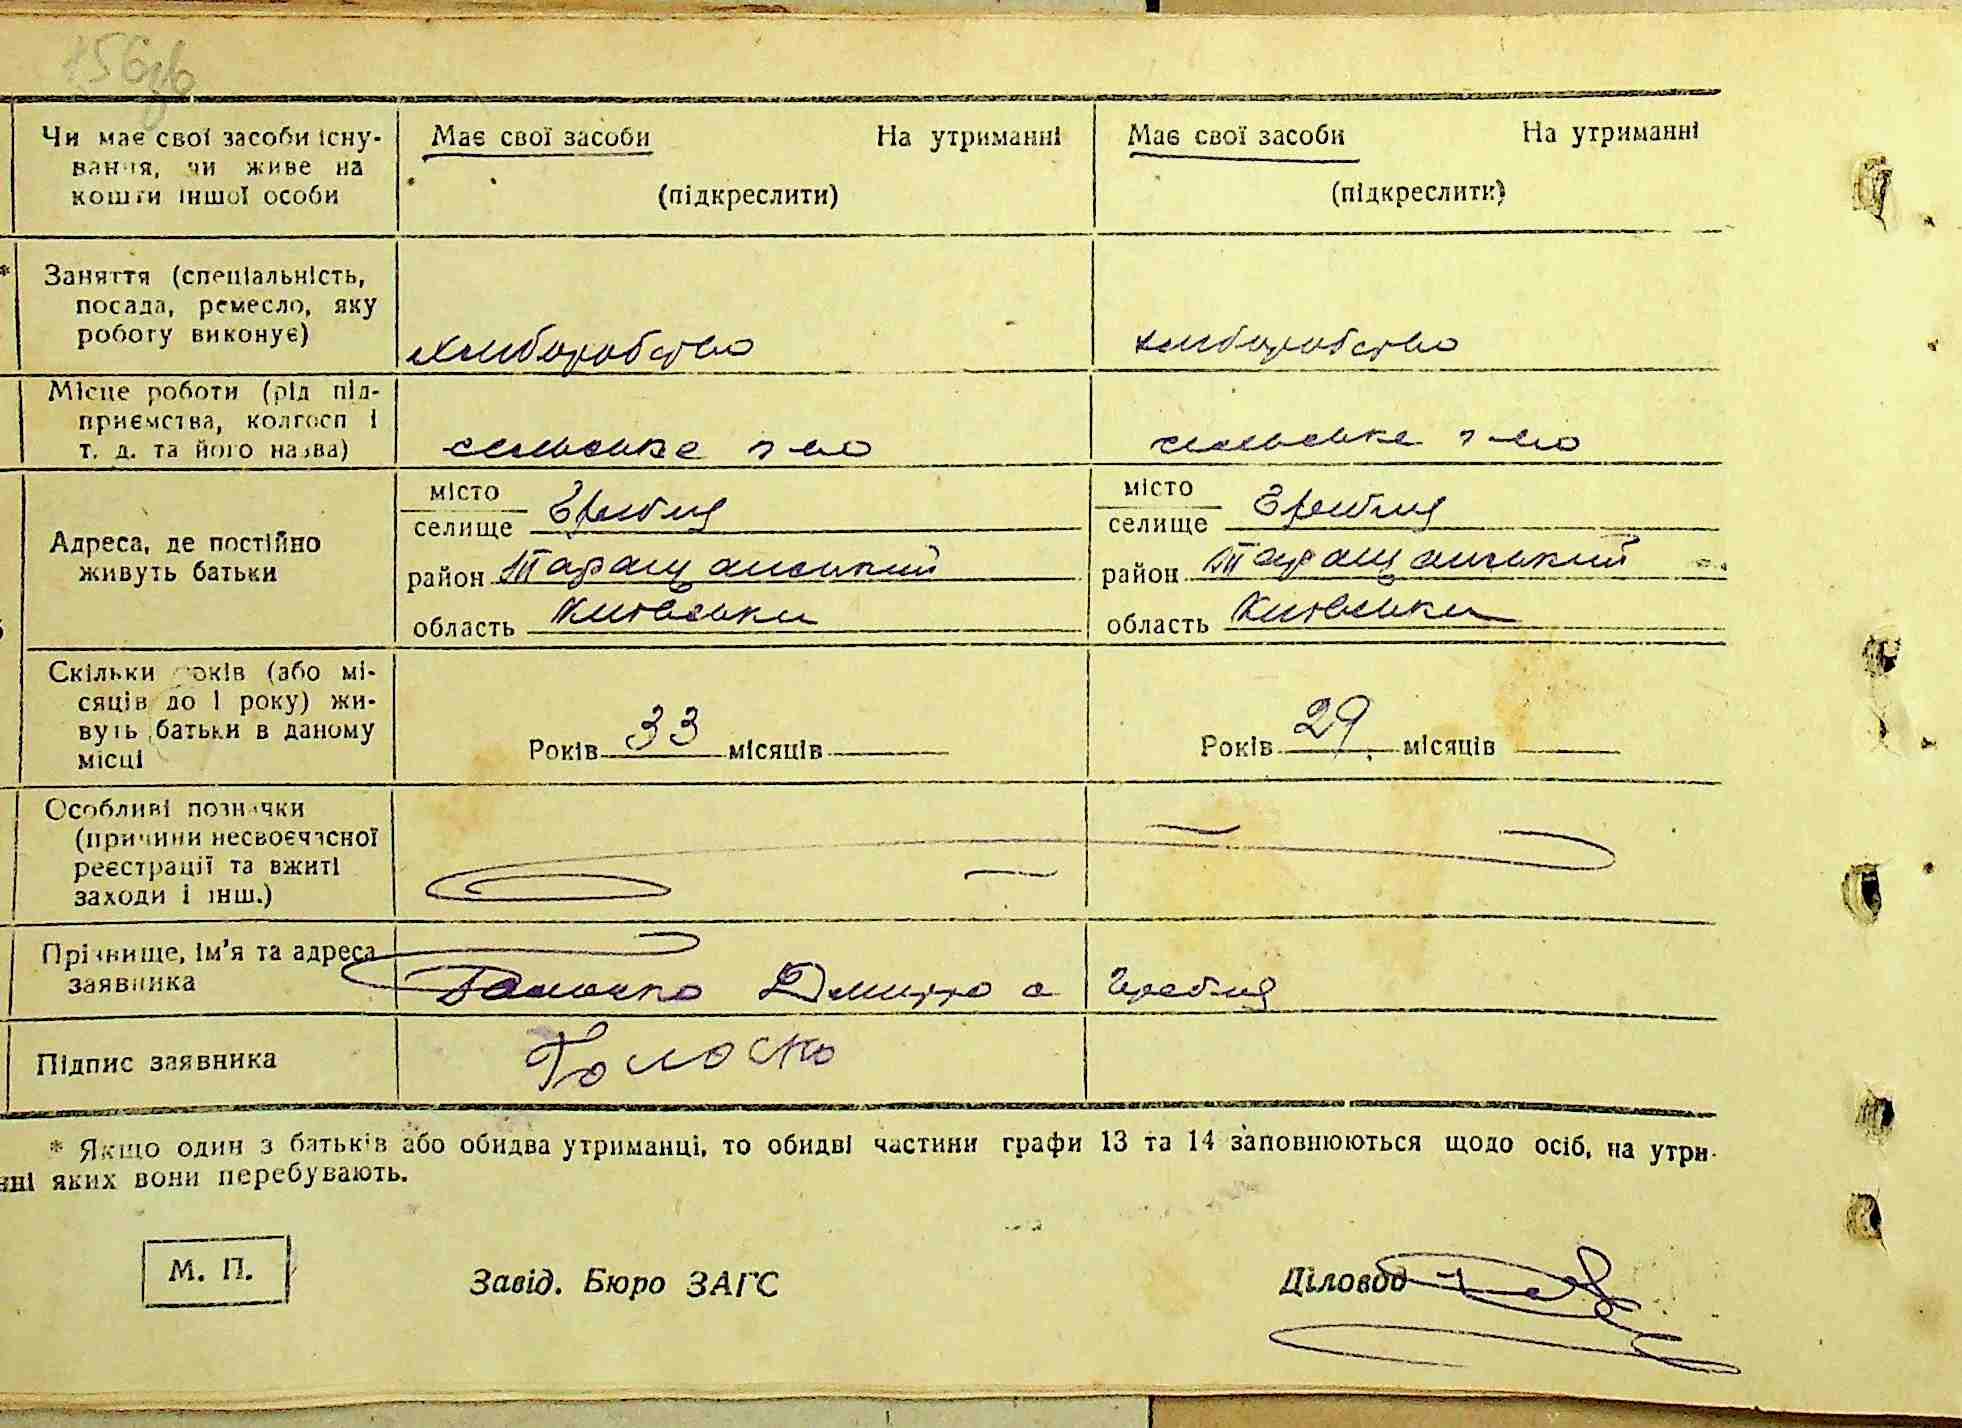 156зв
Чи має свої засоби існування, чи живе на кошти іншої особи
Має свої засоби На утриманні
(підкреслити)
Має свої засоби На утриманні
(підкреслити)
* Заняття (спеціальність,
посада, ремесло, яку
роботу виконує)
хліборобство
хліборобство
Місце роботи (рід під-
приємства, колгосп і
т. д. та його назва)
сельське г-во
сельське г-во
Адреса, де постійно
живуть батьки
місто
селище Гребля
район Таращанський
область Київська
місто
селище Гребля
район Таращанський
область Київська
Скільки років (або мі-
сяців до 1 року) жи-
вуть батьки в даному
місці
Років 33 місяців
Років 29 місяців
Особливі позначки
(причини несвоєчасної
реєстрації та вжиті
заходи і інш.)
Прізвище, ім'я та адреса
заявника
Голоско Дмитро с Гребля
Підпис заявника
Голоско
* Якщо один з батьків або обидва утриманці, то обидві частини графи 13 та 14 заповнюються щодо осіб, на утри-
нні яких вони перебувають.
М. П.
Завід. Бюро ЗАГС
Діловод